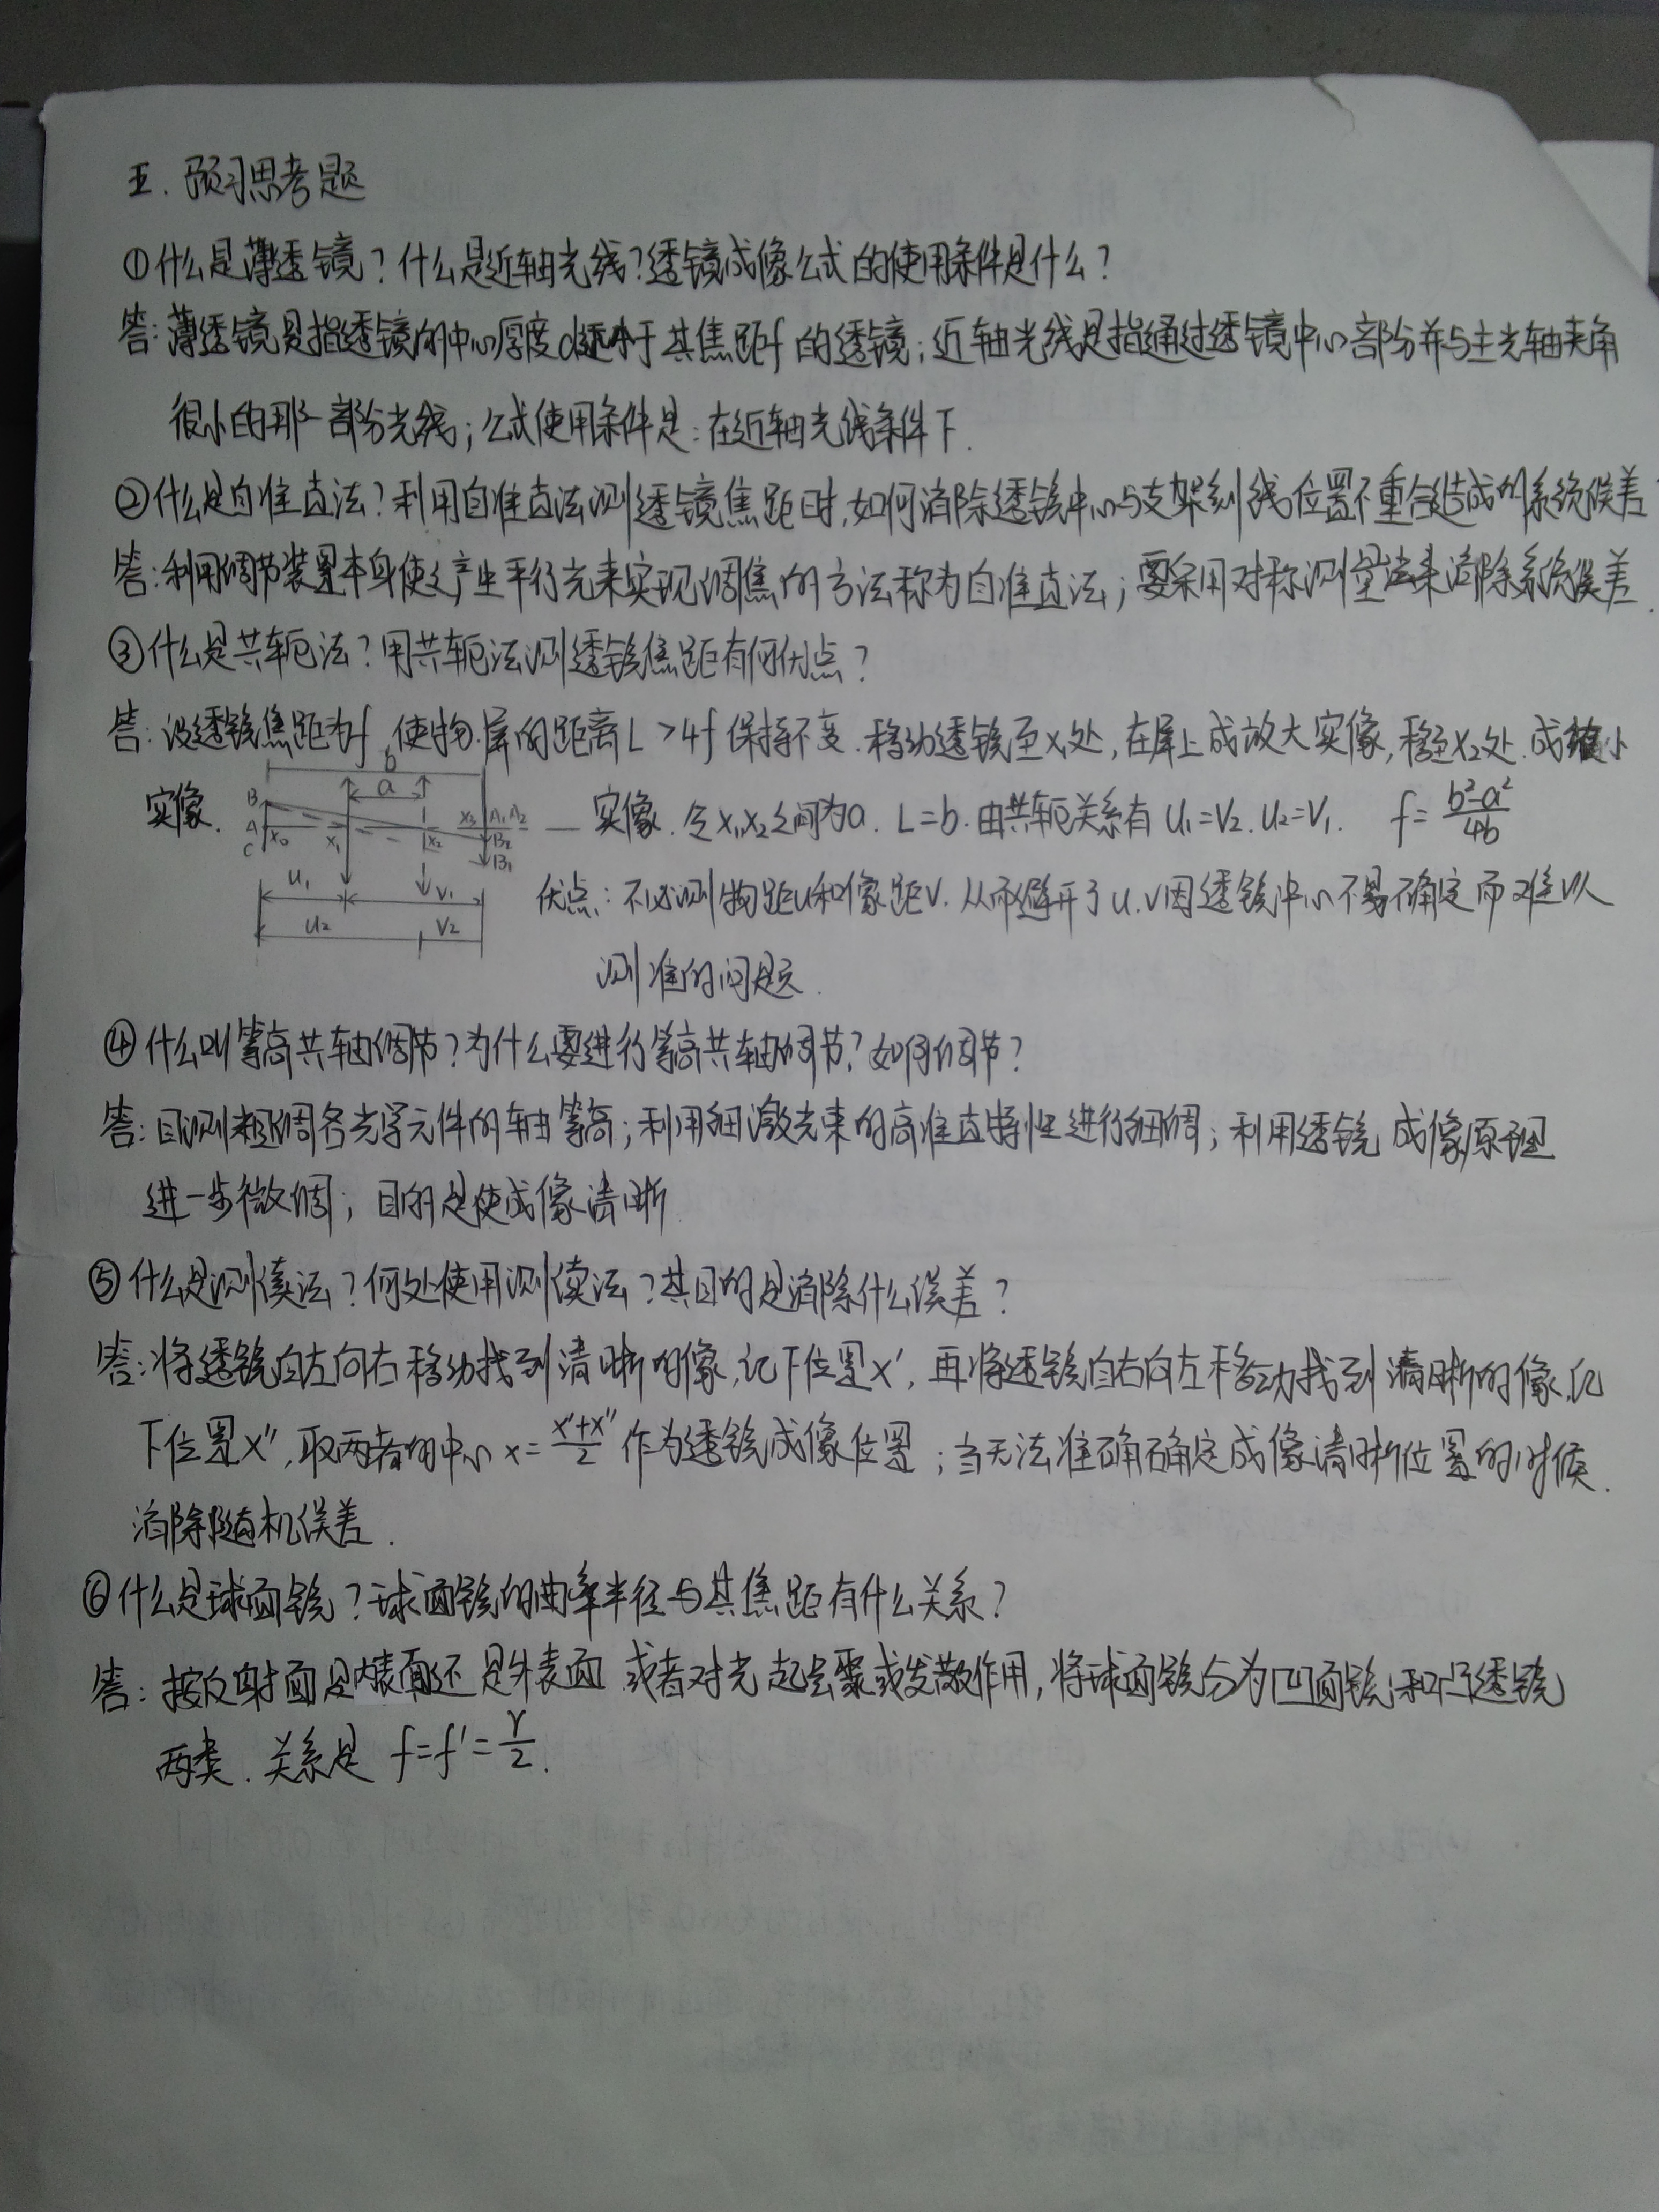 五. 预习思考题
①什么是薄透镜？什么是近轴光线？透镜成像公式的使用条件是什么？
答: 薄透镜是指透镜的中心厚度d远小于其焦距f的透镜; 近轴光线是指通过透镜中心部分并与主光轴夹角
很小的那一部分光线; 公式使用条件是: 在近轴光线条件下.
②什么是自准直法？利用自准直法测透镜焦距时,如何消除透镜中心与支架刻线位置不重合造成的系统误差
答: 利用调节装置本身使之产生平行光来实现调焦的方法称为自准直法; 要采用对称测量法来消除系统误差.
③什么是共轭法？用共轭法测透镜焦距有何优点？
答: 设透镜焦距为f 使物.屏的距离L>4f保持不变. 移动透镜至x₁处,在屏上成放大实像,移至x₂处.成缩小
实像.
b
a
B
A
C
x₀
x₁
x₂
x₃
A₁A₂
B₂
B₁
u₁
v₁
u₂
v₂
实像. 令x₁,x₂之间为a. L=b. 由共轭关系有 u₁=v₂. u₂=v₁. f=\frac{b²-a²}{4b}
优点: 不必测物距u和像距v. 从而避开了u.v因透镜中心不易确定而难以
测准的问题.
④什么叫等高共轴调节？为什么要进行等高共轴调节？如何调节？
答: 目测粗调各光学元件的轴等高; 利用细激光束的高准直特性进行细调; 利用透镜成像原理
进一步微调; 目的是使成像清晰
⑤什么是测读法？何处使用测读法？其目的是消除什么误差？
答: 将透镜自左向右移动找到清晰的像,记下位置x′, 再将透镜自右向左移动找到清晰的像,记
下位置x″, 取两者的中心 x=\frac{x′+x″}{2} 作为透镜成像位置; 当无法准确确定成像清晰位置的时候.
消除随机误差.
⑥什么是球面镜？球面镜的曲率半径与其焦距有什么关系？
答: 按反射面是内表面还是外表面 或者对光起会聚或发散作用, 将球面镜分为凹面镜和凸透镜
两类. 关系是 f=f′=\frac{r}{2}.